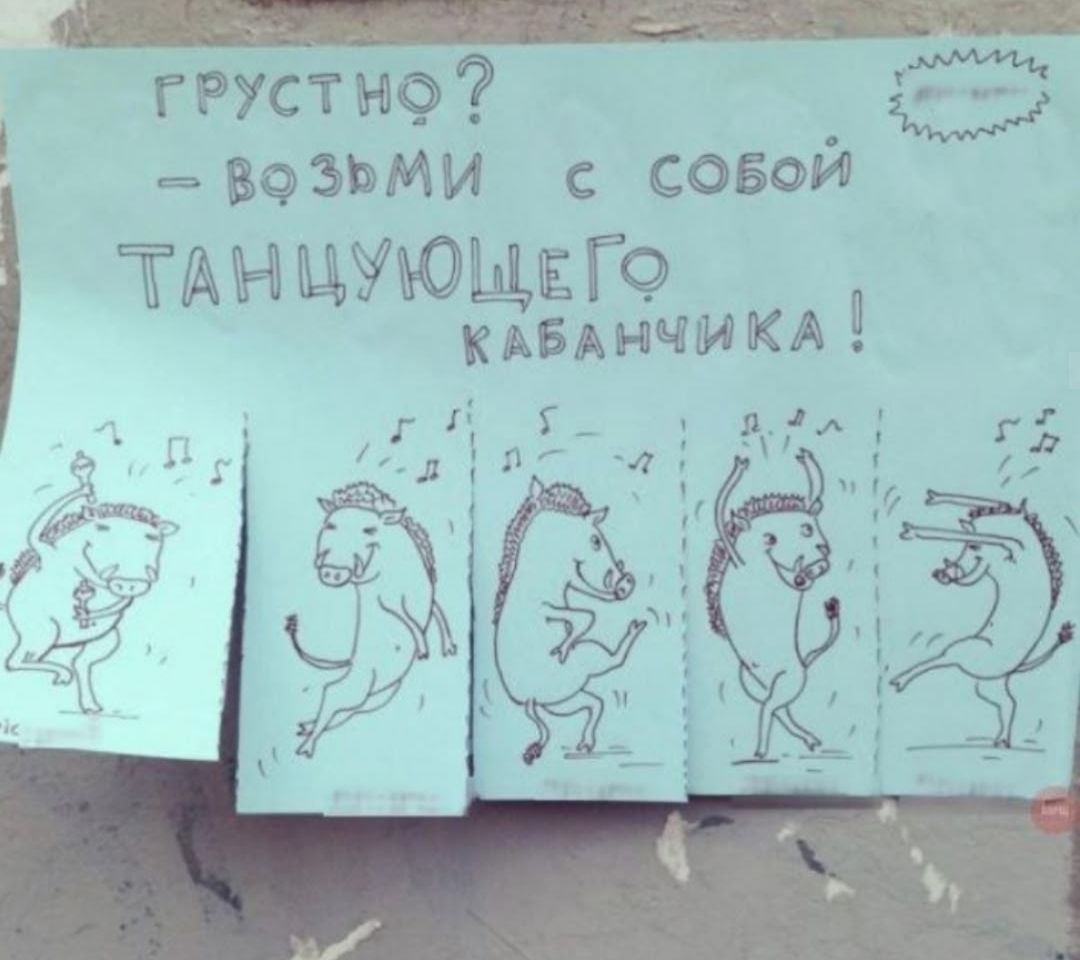 ГРУСТНО?
– ВОЗЬМИ С СОБОЙ
ТАНЦУЮЩЕГО
КАБАНЧИКА!